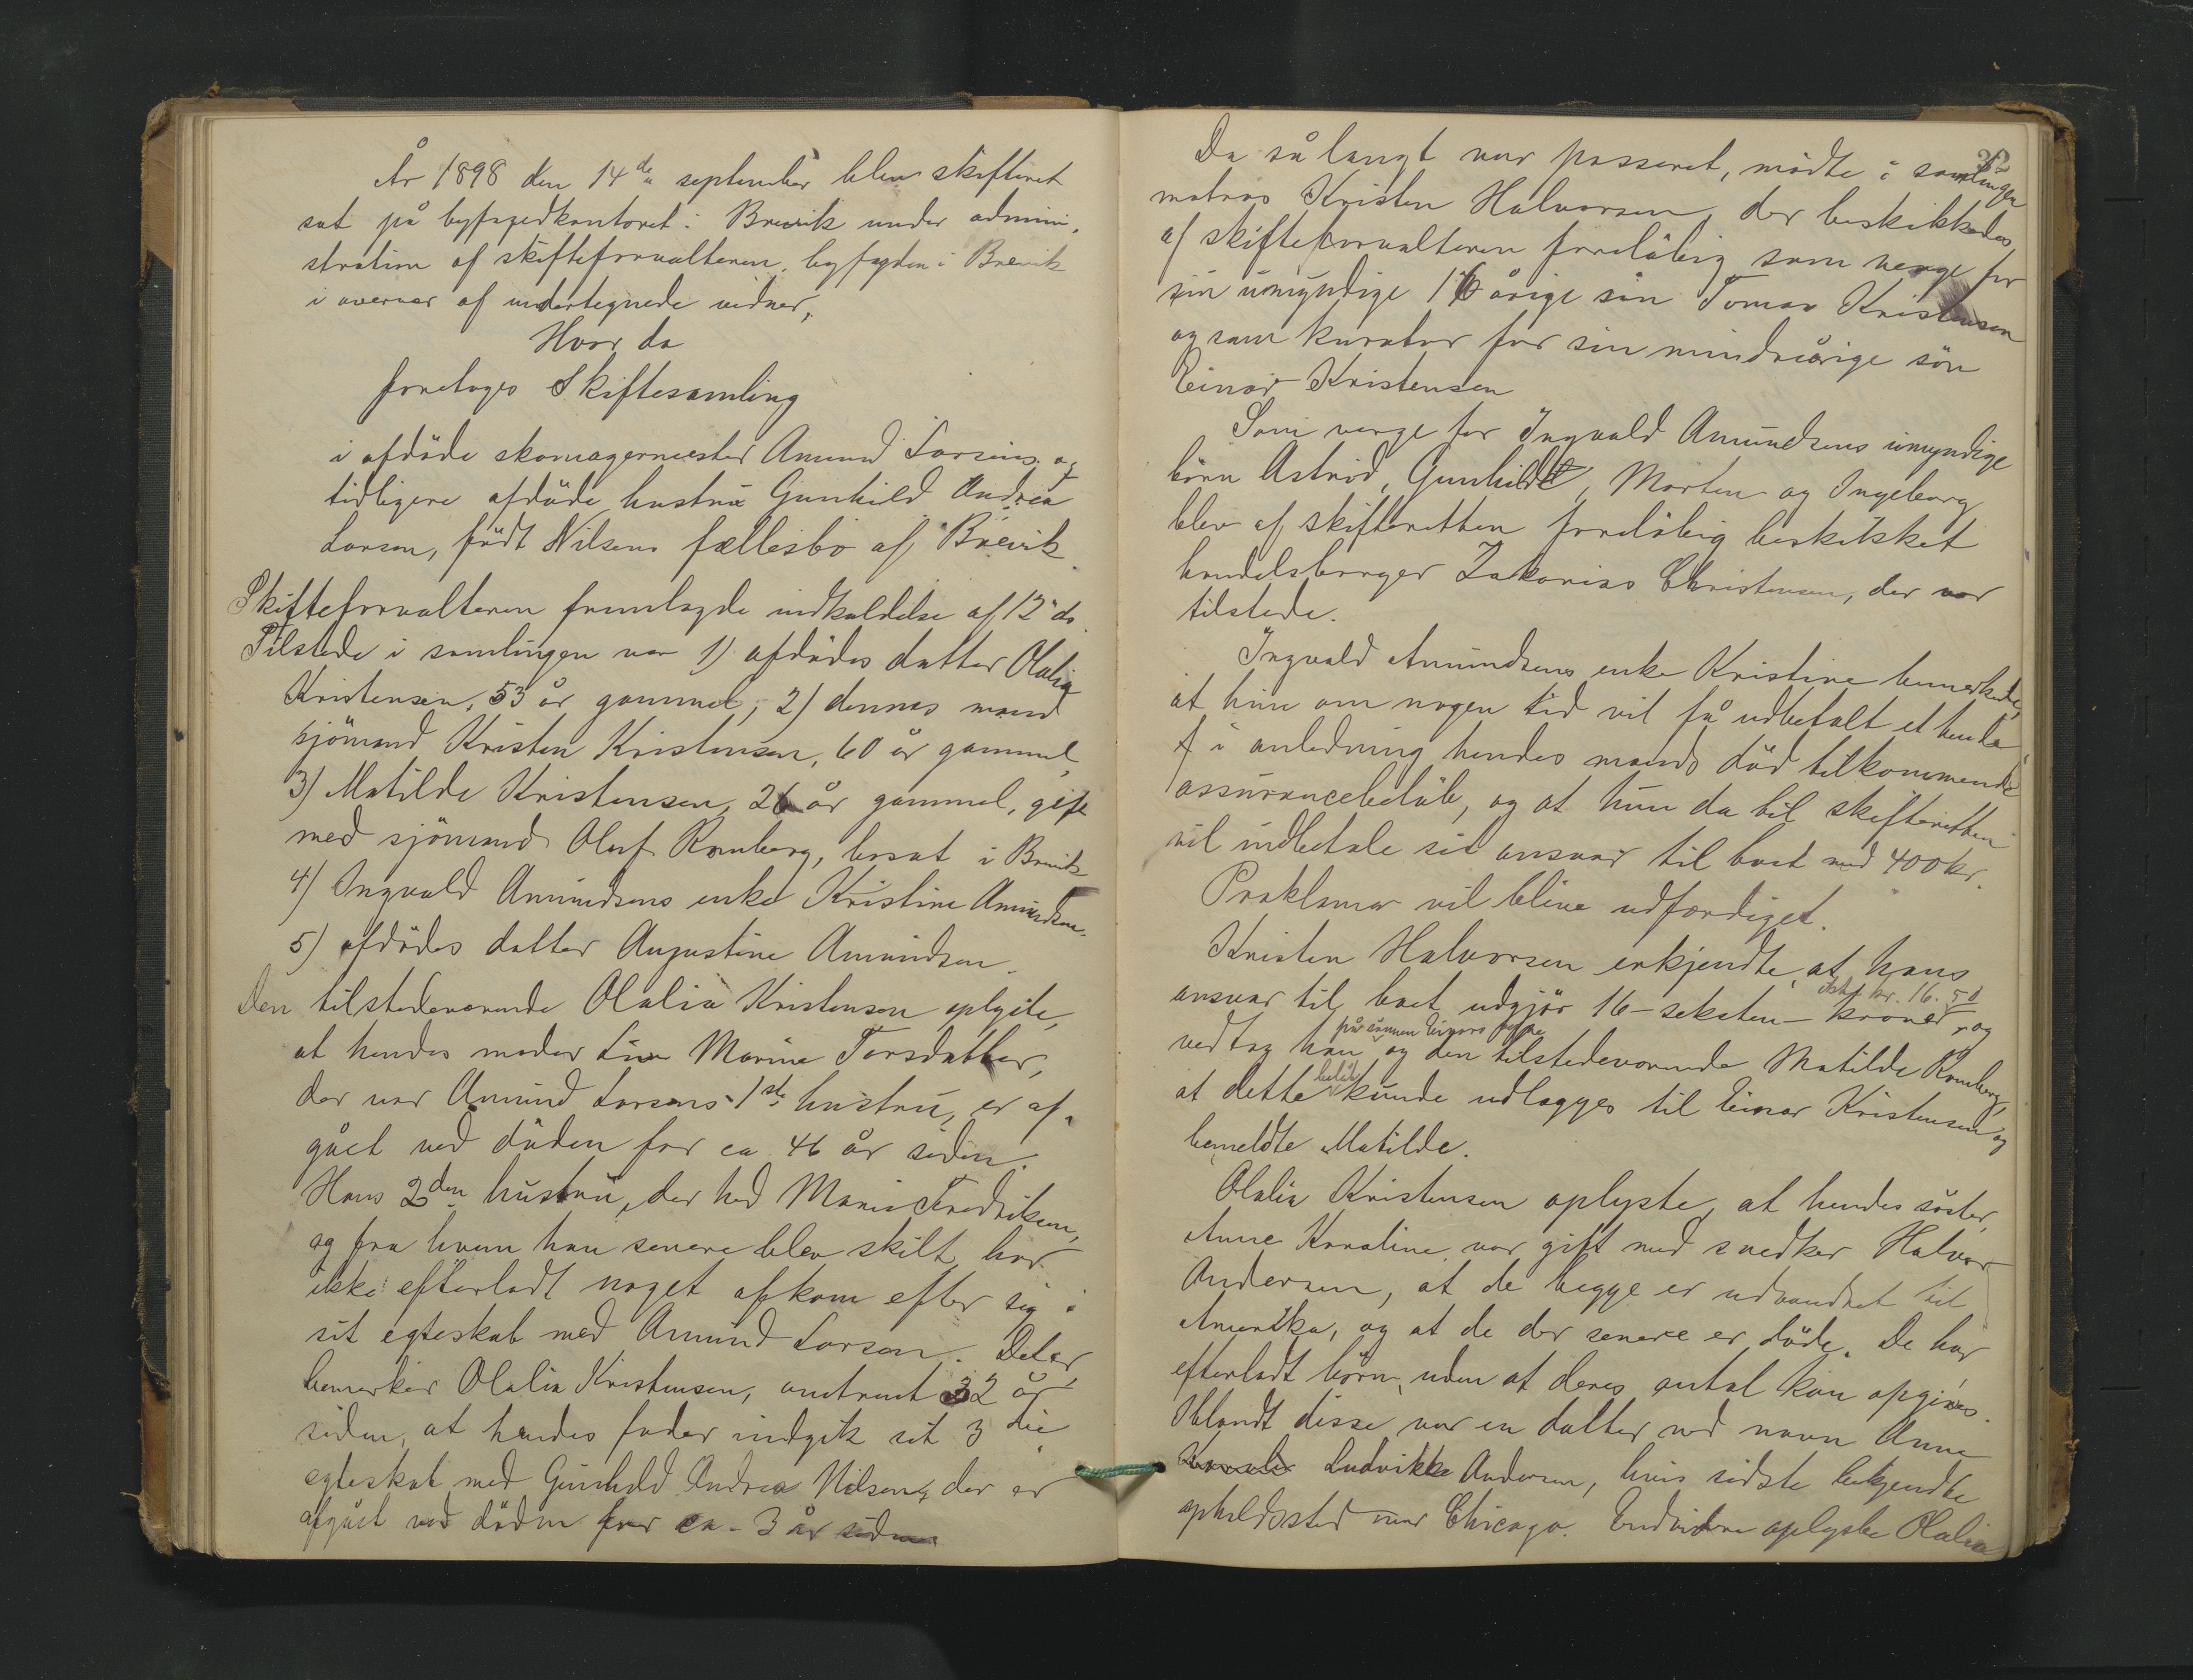 År 1898 den 14de september blev skifteret
sat på byfogedkontoret i Brevik under admini-
stration af skifteforvalteren, byfogden i Brevik
i overvær af undertegnede vidner,
Hvor da
foretoges Skiftesamling
i afdöde skomagermester Amund Larsens og
tidligere afdöde hustru Gunhild Andrea
Larsen, födt Nilsens fællesbo af Brevik.
Skifteforvalteren fremlagde indkaldelse af 12 ds.
Tilstede i samlingen var 1) afdödes datter Olalia
Kristensen, 53 år gammel, 2) dennes mand
sjömand Kristen Kristensen, 60 år gammel,
3) Matilde Kristensen, 26 år gammel, gift
med sjömand Oluf Romberg, bosat i Brevik
4) Ingvald Amundsens enke Kristine Amundsen.
5) afdödes datter Augustine Amundsen.
Den tilstedeværende Olalia Kristensen oplyste,
at hendes moder Marine Torsdatter,
der var Amund Larsens 1ste hustru, er af-
gået ved döden for ca 46 år siden.
Hans 2den hustru, der hed Marie Fredriksen,
og fra hvem han senere blev skilt, har
ikke efterladt noget afkom efter sig i
sit egteskab med Amund Larsen. Det er,
bemerker Olalia Kristensen, omtrent 32 år
siden, at hendes fader indgik sit 3die
egteskab med Gunhild Andrea Nilsen, der er
afgået ved döden for ca. 3 år siden
32
Da så langt var passeret, mödte i samlingen
matros Kristen Halvorsen, der beskikkedes
af skifteforvalteren forelöbig som verge for
sin umyndige 16 årige sön Tomas Kristensen
og som kurator for sin mindreårige sön
Einar Kristensen
Som verge for Ingvald Amundsens umyndige
börn Astrid, Gunhild, Morten og Ingeborg
blev af skifteretten forelöbig beskikket
handelsborger Zakarias Christensen, der var
tilstede.
Ingvald Amundsens enke Kristine bemerkede,
at hun om nogen tid vil få udbetalt et hende
i anledning hendes mands död tilkommende
assurancebelöb, og at hun da til skifteretten
vil indbetale sit ansvar til boet med 400 kr.
Proklama vil blive udfærdiget.
Kristen Halvorsen erkjendte, at hans
ansvar til boet udgjör 16 - seksten - kroner, og
kr. 16.50
vedtog han og den tilstedeværende Matilde Romberg,
på sönnen Einars
at dette belöb kunde udlægges til Einar Kristensen og
bemeldte Matilde.
Olalia Kristensen oplyste, at hendes söster,
Anne Karoline var gift med snedker Halvor
Andersen, at de begge er udvandret til
Amerika, og at de der senere er döde. De har
efterladt börn, uden at deres antal kan opgives.
Iblandt disse var en datter ved navn Anne
Ludvikke Andersen, hvis sidste bekjendte
opholdssted var Chicago. Endvidere oplyste Olalia